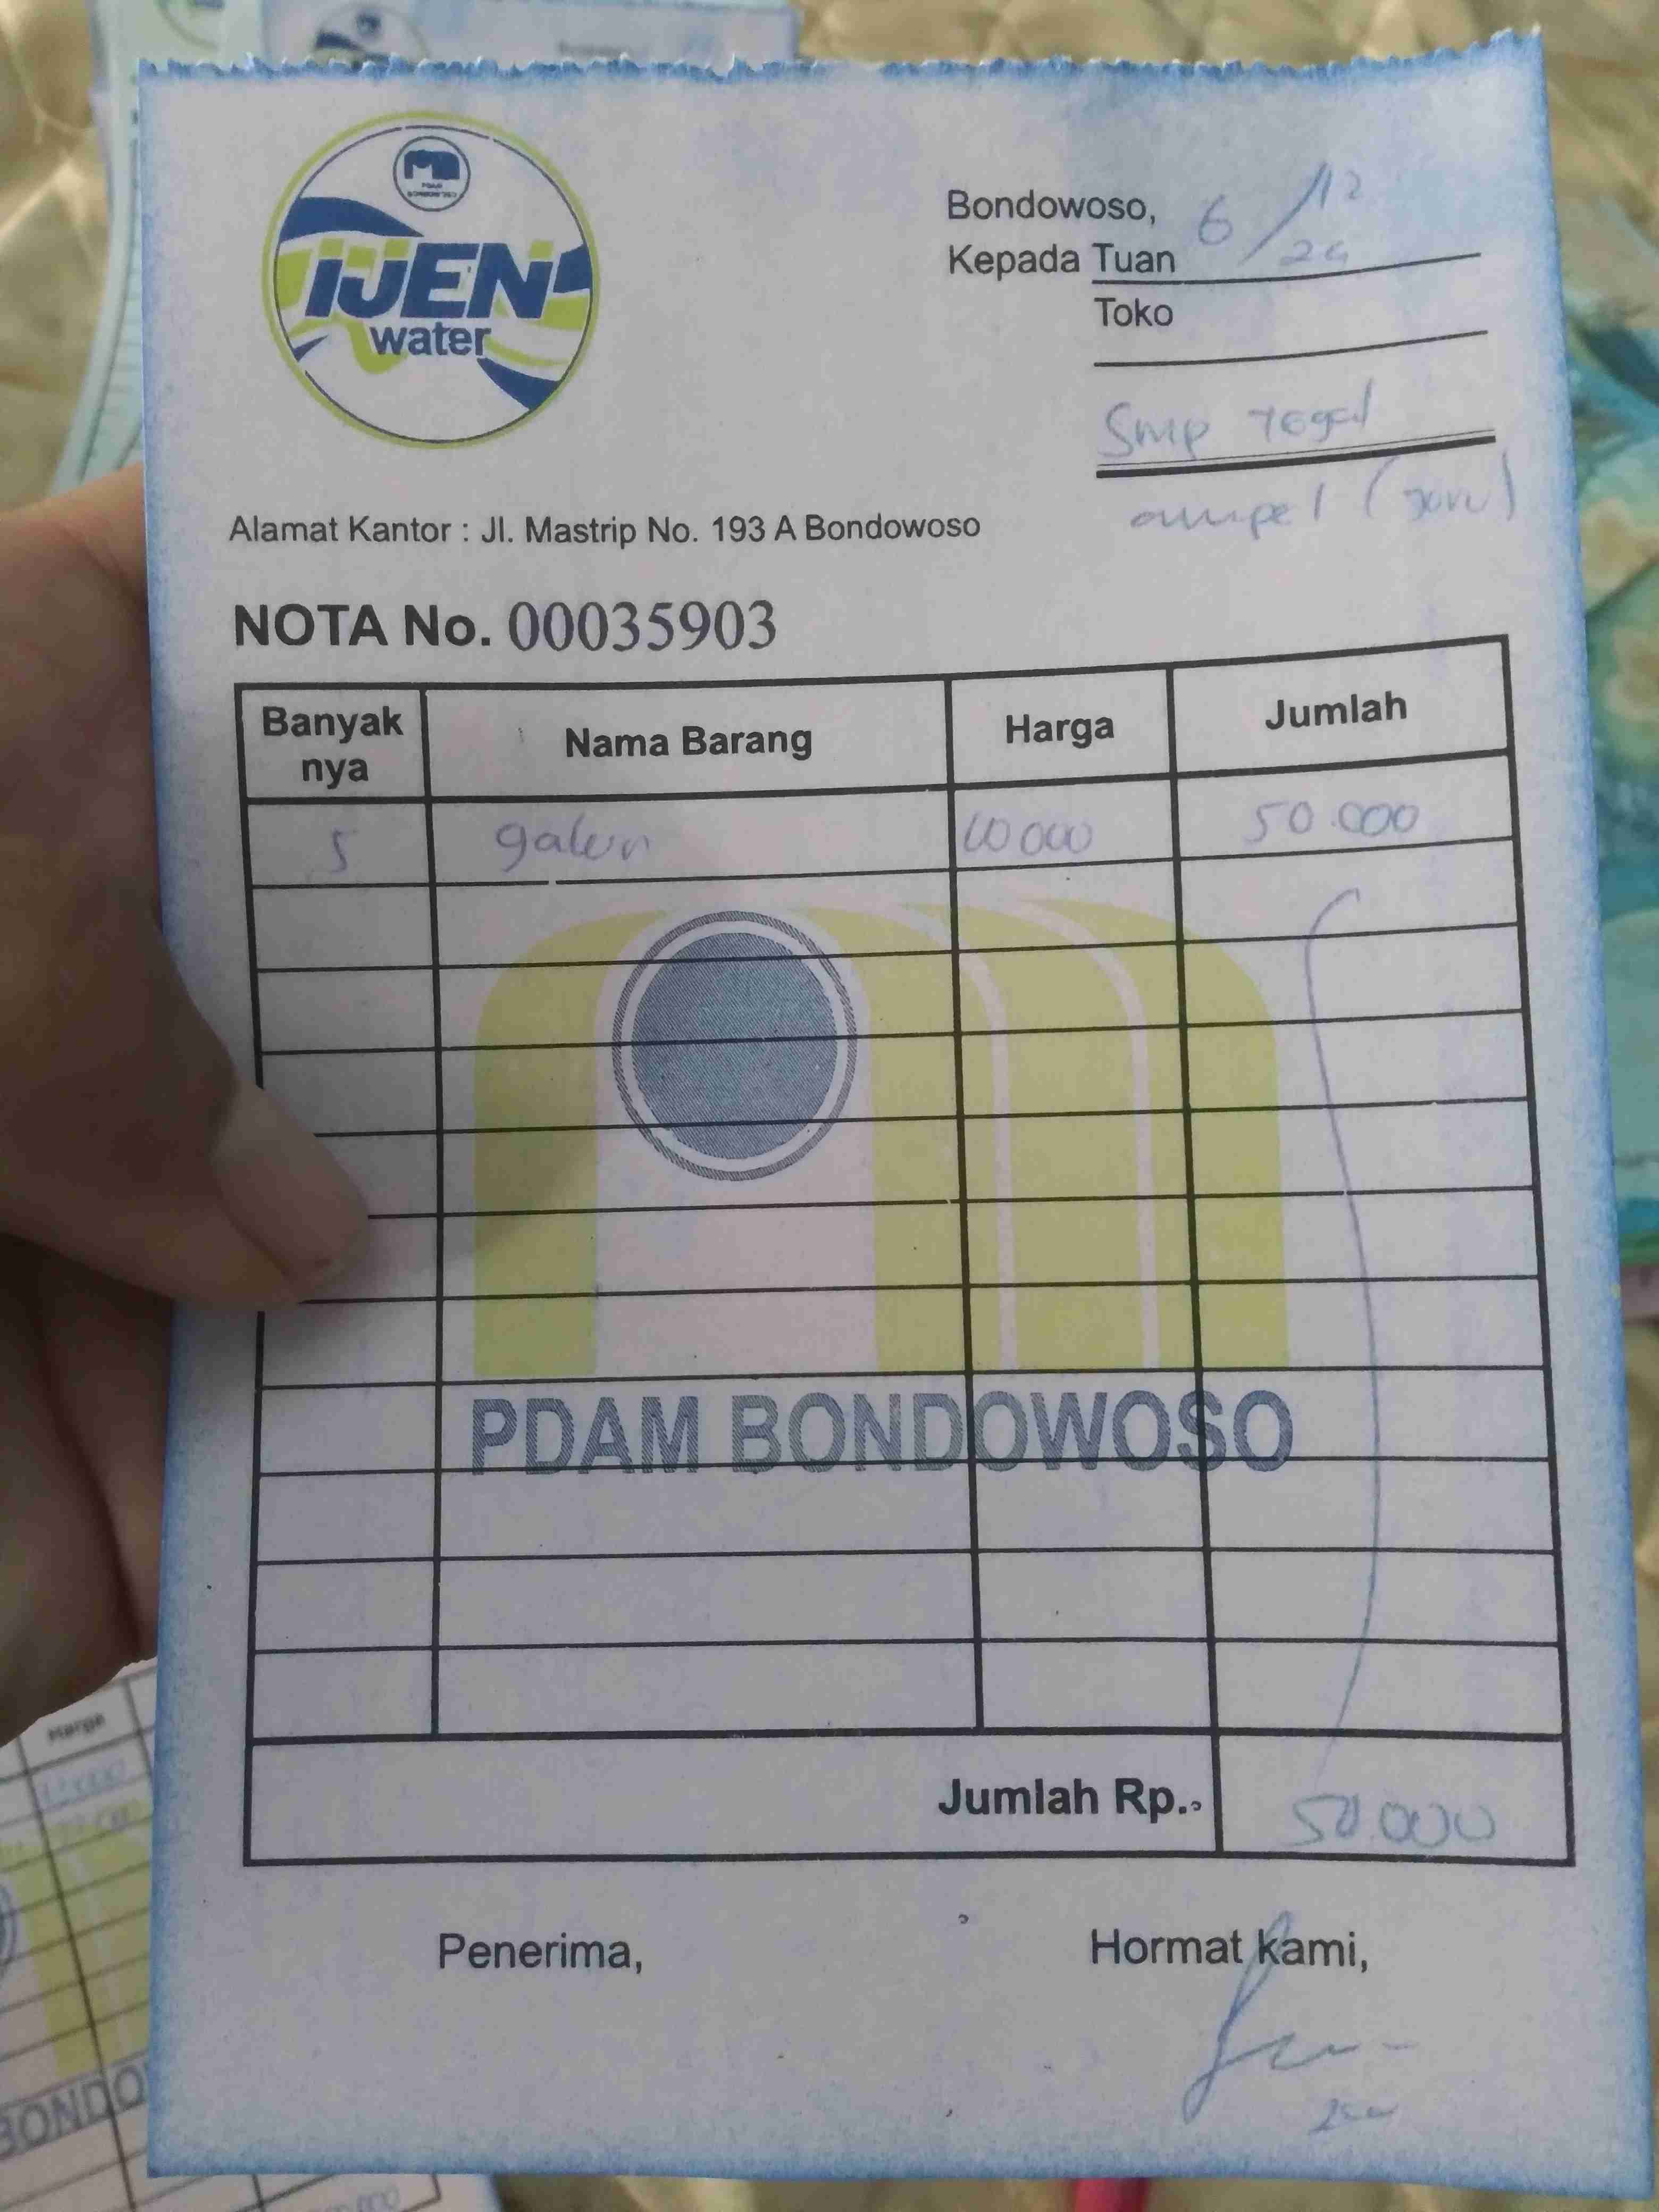 PDAM
BONDOWOSO
IJEN
water
Bondowoso, 6/12
24
Kepada Tuan
Toko
Smp Tegal
ampel (guru)
Alamat Kantor : Jl. Mastrip No. 193 A Bondowoso
NOTA No. 00035903
Banyak nya Nama Barang Harga Jumlah
5 galon 10000 50.000
PDAM BONDOWOSO
Jumlah Rp. 50.000
Penerima, Hormat Kami,
Harga
BONDO